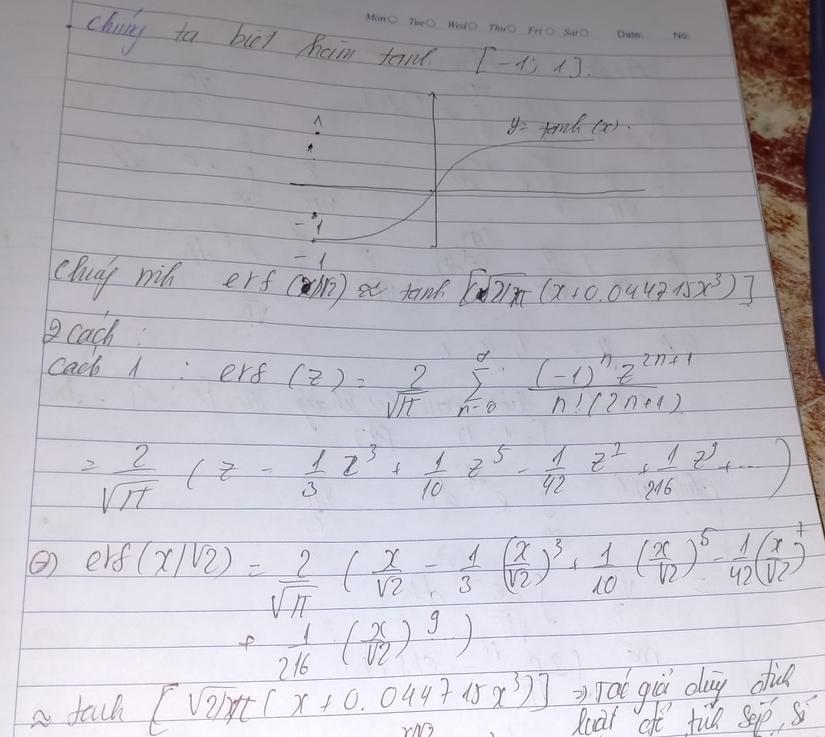 Mon Tue Wed Thu Fri Sat Date: No:
Chúng ta biết hàm tanh [-1; 1].
1
y = tanh(x).
-1
-1
erf (x/√2) ≈ tanh [√2/π (x+0.044715x³)]
2 cách :
Cách 1 : erf (z) = 2/√π ∑ n=0 (-1)^n z^(2n+1) / n!(2n+1)
= 2/√π ( z - 1/3 z³ + 1/10 z⁵ - 1/42 z⁷ + 1/216 z⁹ + ... )
erf(x/√2) = 2/√π ( x/√2 - 1/3 (x/√2)³ + 1/10 (x/√2)⁵ - 1/42 (x/√2)⁷
+ 1/216 (x/√2)⁹ )
≈ tanh [ √2/π ( x + 0.044715x³ ) ] => Tác giả dùng định
luật để